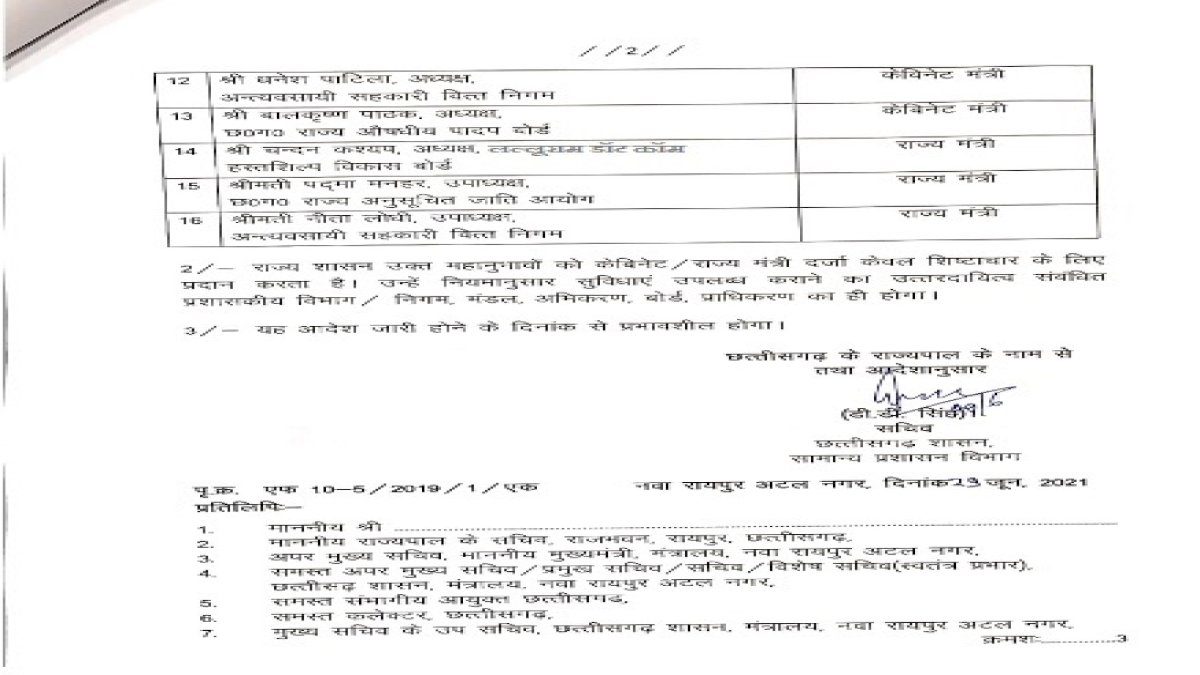 //2//
12 श्री धनेश पाटिला, अध्यक्ष, केबिनेट मंत्री
अन्त्यवसायी सहकारी वित्त निगम
13 श्री बालकृष्ण पाठक, अध्यक्ष, केबिनेट मंत्री
छ0ग0 राज्य औषधीय पादप बोर्ड
14 श्री चन्दन कश्यप, अध्यक्ष, लल्लूराम डॉट कॉम राज्य मंत्री
हस्तशिल्प विकास बोर्ड
15 श्रीमती पद्मा मनहर, उपाध्यक्ष, राज्य मंत्री
छ0ग0 राज्य अनुसूचित जाति आयोग
16 श्रीमती नीता लोधी, उपाध्यक्ष, राज्य मंत्री
अन्त्यवसायी सहकारी वित्त निगम
2/— राज्य शासन उक्त महानुभावों को केबिनेट/राज्य मंत्री दर्जा केवल शिष्टाचार के लिए
प्रदान करता है। उन्हें नियमानुसार सुविधाएं उपलब्ध कराने का उत्तरदायित्व संबंधित
प्रशासकीय विभाग/ निगम, मंडल, अभिकरण, बोर्ड, प्राधिकरण का ही होगा।
3/— यह आदेश जारी होने के दिनांक से प्रभावशील होगा।
छत्तीसगढ़ के राज्यपाल के नाम से
तथा आदेशानुसार
29/6
(डी.डी. सिंह)
सचिव
छत्तीसगढ़ शासन,
सामान्य प्रशासन विभाग
पृ.क्र. एफ 10-5/2019/1/एक नवा रायपुर अटल नगर, दिनांक 29 जून, 2021
प्रतिलिपि:—
1. माननीय श्री
2. माननीय राज्यपाल के सचिव, राजभवन, रायपुर, छत्तीसगढ़,
3. अपर मुख्य सचिव, माननीय मुख्यमंत्री, मंत्रालय, नवा रायपुर अटल नगर,
4. समस्त अपर मुख्य सचिव/प्रमुख सचिव/सचिव/विशेष सचिव(स्वतंत्र प्रभार),
छत्तीसढ़ शासन, मंत्रालय, नवा रायपुर अटल नगर,
5. समस्त संभागीय आयुक्त छत्तीसगढ़,
6. समस्त कलेक्टर, छत्तीसगढ़,
7. मुख्य सचिव के उप सचिव, छत्तीसगढ़ शासन, मंत्रालय, नवा रायपुर अटल नगर,
क्रमशः..............3